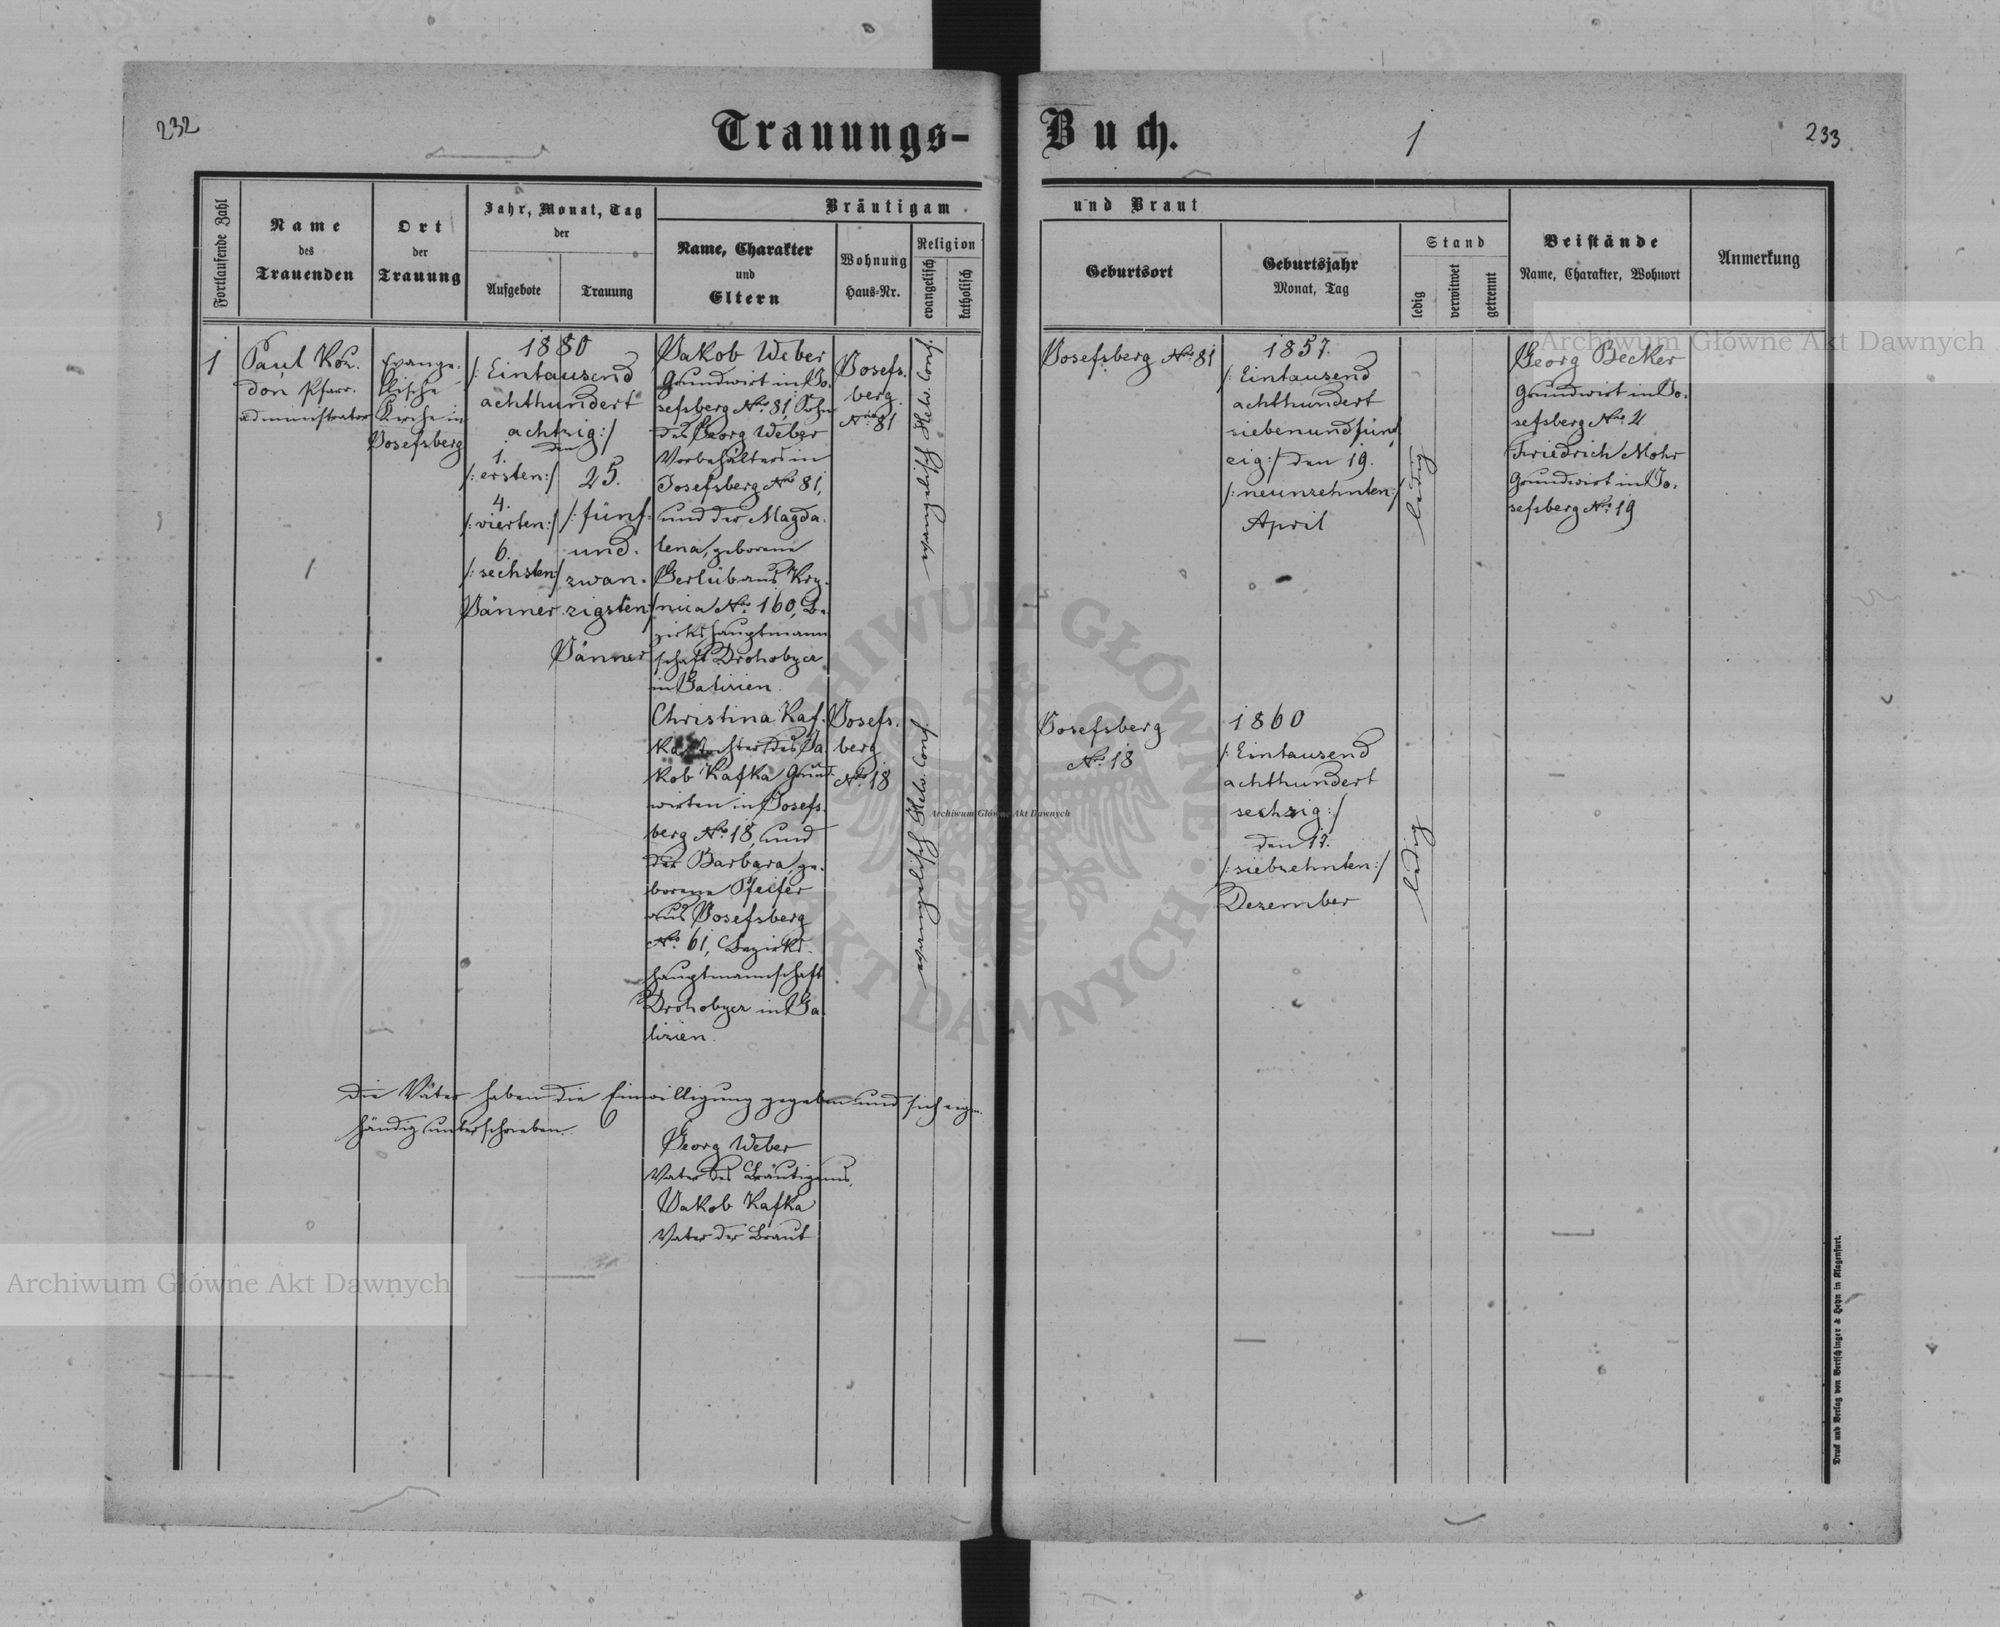 232
Trauungs-
Buch.
1
233
Fortlaufende Zahl
Name
des
Trauenden
Ort
der
Trauung
Jahr, Monat, Tag
der
Aufgebote
Trauung
Bräutigam
Name, Charakter
und
Eltern
Wohnung
Haus-Nr.
Religion
evangelisch
katholisch
und Braut
Geburtsort
Geburtsjahr
Monat, Tag
Stand
ledig
verwitwet
getrennt
Beistände
Name, Charakter, Wohnort
Anmerkung
1
Paul
don Pfarr-
administrator
Evange-
lische
Kirche in
Josefsberg
1880
/: Eintausend
achthundert
achtzig :/
den
1.
/: ersten :/
4.
/: vierten :/
6.
/: sechsten :/
Jänner
25.
/: fünf-
und-
zwan-
zigsten :/
Jänner
Jakob Weber
Grundwirt in Jo-
sefsberg No. 81, Sohn
des Georg Weber
Vorbehälters in
Josefsberg No 81,
und der Magda-
lena, geborene
Gerlib aus Kry-
nica No. 160, Be-
zirkshauptmann
schaft Drohobycz
in Galizien.
Josefs-
berg
No. 81
evangelisch Helv. Conf.
Josefsberg No. 81
1857.
/: Eintausend
achthundert
siebenundfünf
zig :/ den 19.
/: neunzehnten :/
April
ledig
Georg Becker
Grundwirt in Jo-
sefsberg No. 21
Friedrich Mohr
Grundwirt in Jo-
sefsberg No. 19
Christina Kaf-
ka Tochter des Ja
kob Kafka Grund-
wirten in Josefs-
berg No. 18, und
der Barbara, ge-
borene Pfeifer
aus Josefsberg
No. 61, Bezirks-
hauptmannschaft
Drohobycz in Ga-
lizien.
Josefs-
berg
No. 18
evangelisch Helv. Conf.
Josefsberg
No. 18
1860
/: Eintausend
achthundert
sechzig :/
den 17.
/: siebzehnten :/
Dezember
ledig
Die Väter haben die Einwilligung gegeben und sich eigen-
händig unterschrieben.
Georg Weber
Vater des Bräutigams,
Jakob Kafka
Vater der Braut
Druck und Verlag von Bertschinger & Heyn in Klagenfurt.
Archiwum Główne Akt Dawnych
Archiwum Główne Akt Dawnych
Archiwum Główne Akt Dawnych
ARCHIWUM GŁÓWNE
AKT DAWNYCH